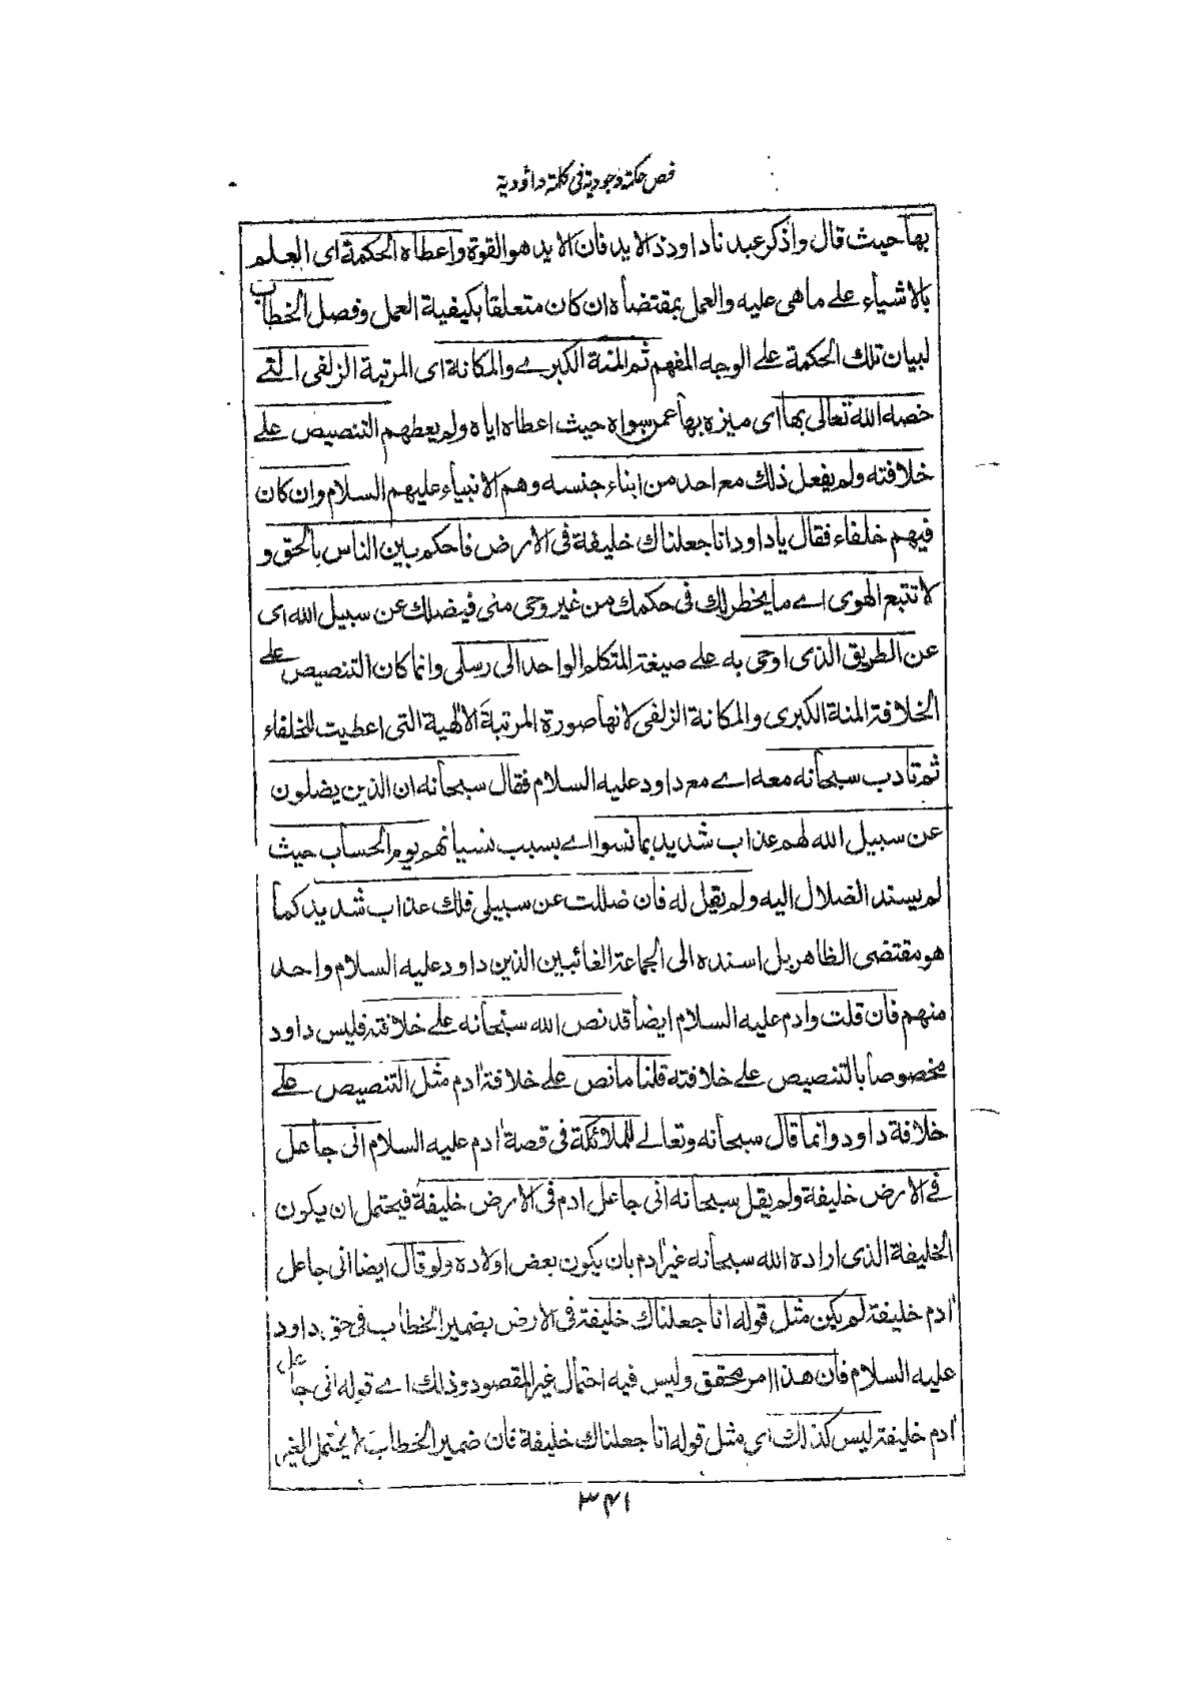 فص حكمة وجودية فى كلمة داؤدية
بها حيث قال واذكر عبدنا داود ذا الايد فان الايد هو القوة واعطاه الحكمة اى العلم
بالاشياء على ماهى عليه والعمل بمقتضاه ان كان متعلقا بكيفية العمل وفصل الخطاب
لبيان تلك الحكمة على الوجه المفهم ثم المنة الكبرے والمكانة اى المرتبة الزلفى التے
خصه الله تعالى بها اى ميزه بها عمن سواه حيث اعطاه اياه ولم يعطهم التنصيص على
خلافته ولم يفعل ذلك مع احد من ابناء جنسه وهم الانبياء عليهم السلام وان كان
فيهم خلفاء فقال ياداود انا جعلناك خليفة فى الارض فاحكم بين الناس بالحق و
لا تتبع الهوى اے ما يخطر لك فى حكمك من غير وحى منى فيضلك عن سبيل الله اى
عن الطريق الذى اوحى به على صيغة المتكلم الواحد الى رسلى وانما كان التنصيص على
الخلافة المنة الكبرى والمكانة الزلفى لانها صورة المرتبة الالهية التى اعطيت للخلفاء
ثم تادب سبحانه معه اے مع داود عليه السلام فقال سبحانه ان الذين يضلون
عن سبيل الله لهم عذاب شديد بما نسوا اے بسبب نسيانهم يوم الحساب حيث
لم يسند الضلال اليه ولم يقل له فان ضللت عن سبيلى فلك عذاب شديد كما
هو مقتضى الظاهر بل اسنده الى الجماعة الغائبين الذين داود عليه السلام واحد
منهم فان قلت وادم عليه السلام ايضا قد نص الله سبحانه على خلافته فليس داود
مخصوصا بالتنصيص على خلافته قلنا ما نص على خلافة ادم مثل التنصيص على
خلافة داود وانما قال سبحانه وتعالے للملائكة فى قصة ادم عليه السلام انى جاعل
فے الارض خليفة ولم يقل سبحانه انى جاعل ادم فى الارض خليفة فيحتمل ان يكون
الخليفة الذى اراده الله سبحانه غير ادم بان يكون بعض اولاده ولو قال ايضا انى جاعل
ادم خليفة لم يكن مثل قوله انا جعلناك خليفة فى الارض بضمير الخطاب فى حق داود
عليه السلام فان هذا امر محقق وليس فيه احتمال غير المقصود وذلك اے قوله انى جاعل
ادم خليفة ليس كذلك اى مثل قوله انا جعلناك خليفة فان ضمير الخطاب لا يحتمل الغير
۳۴۱